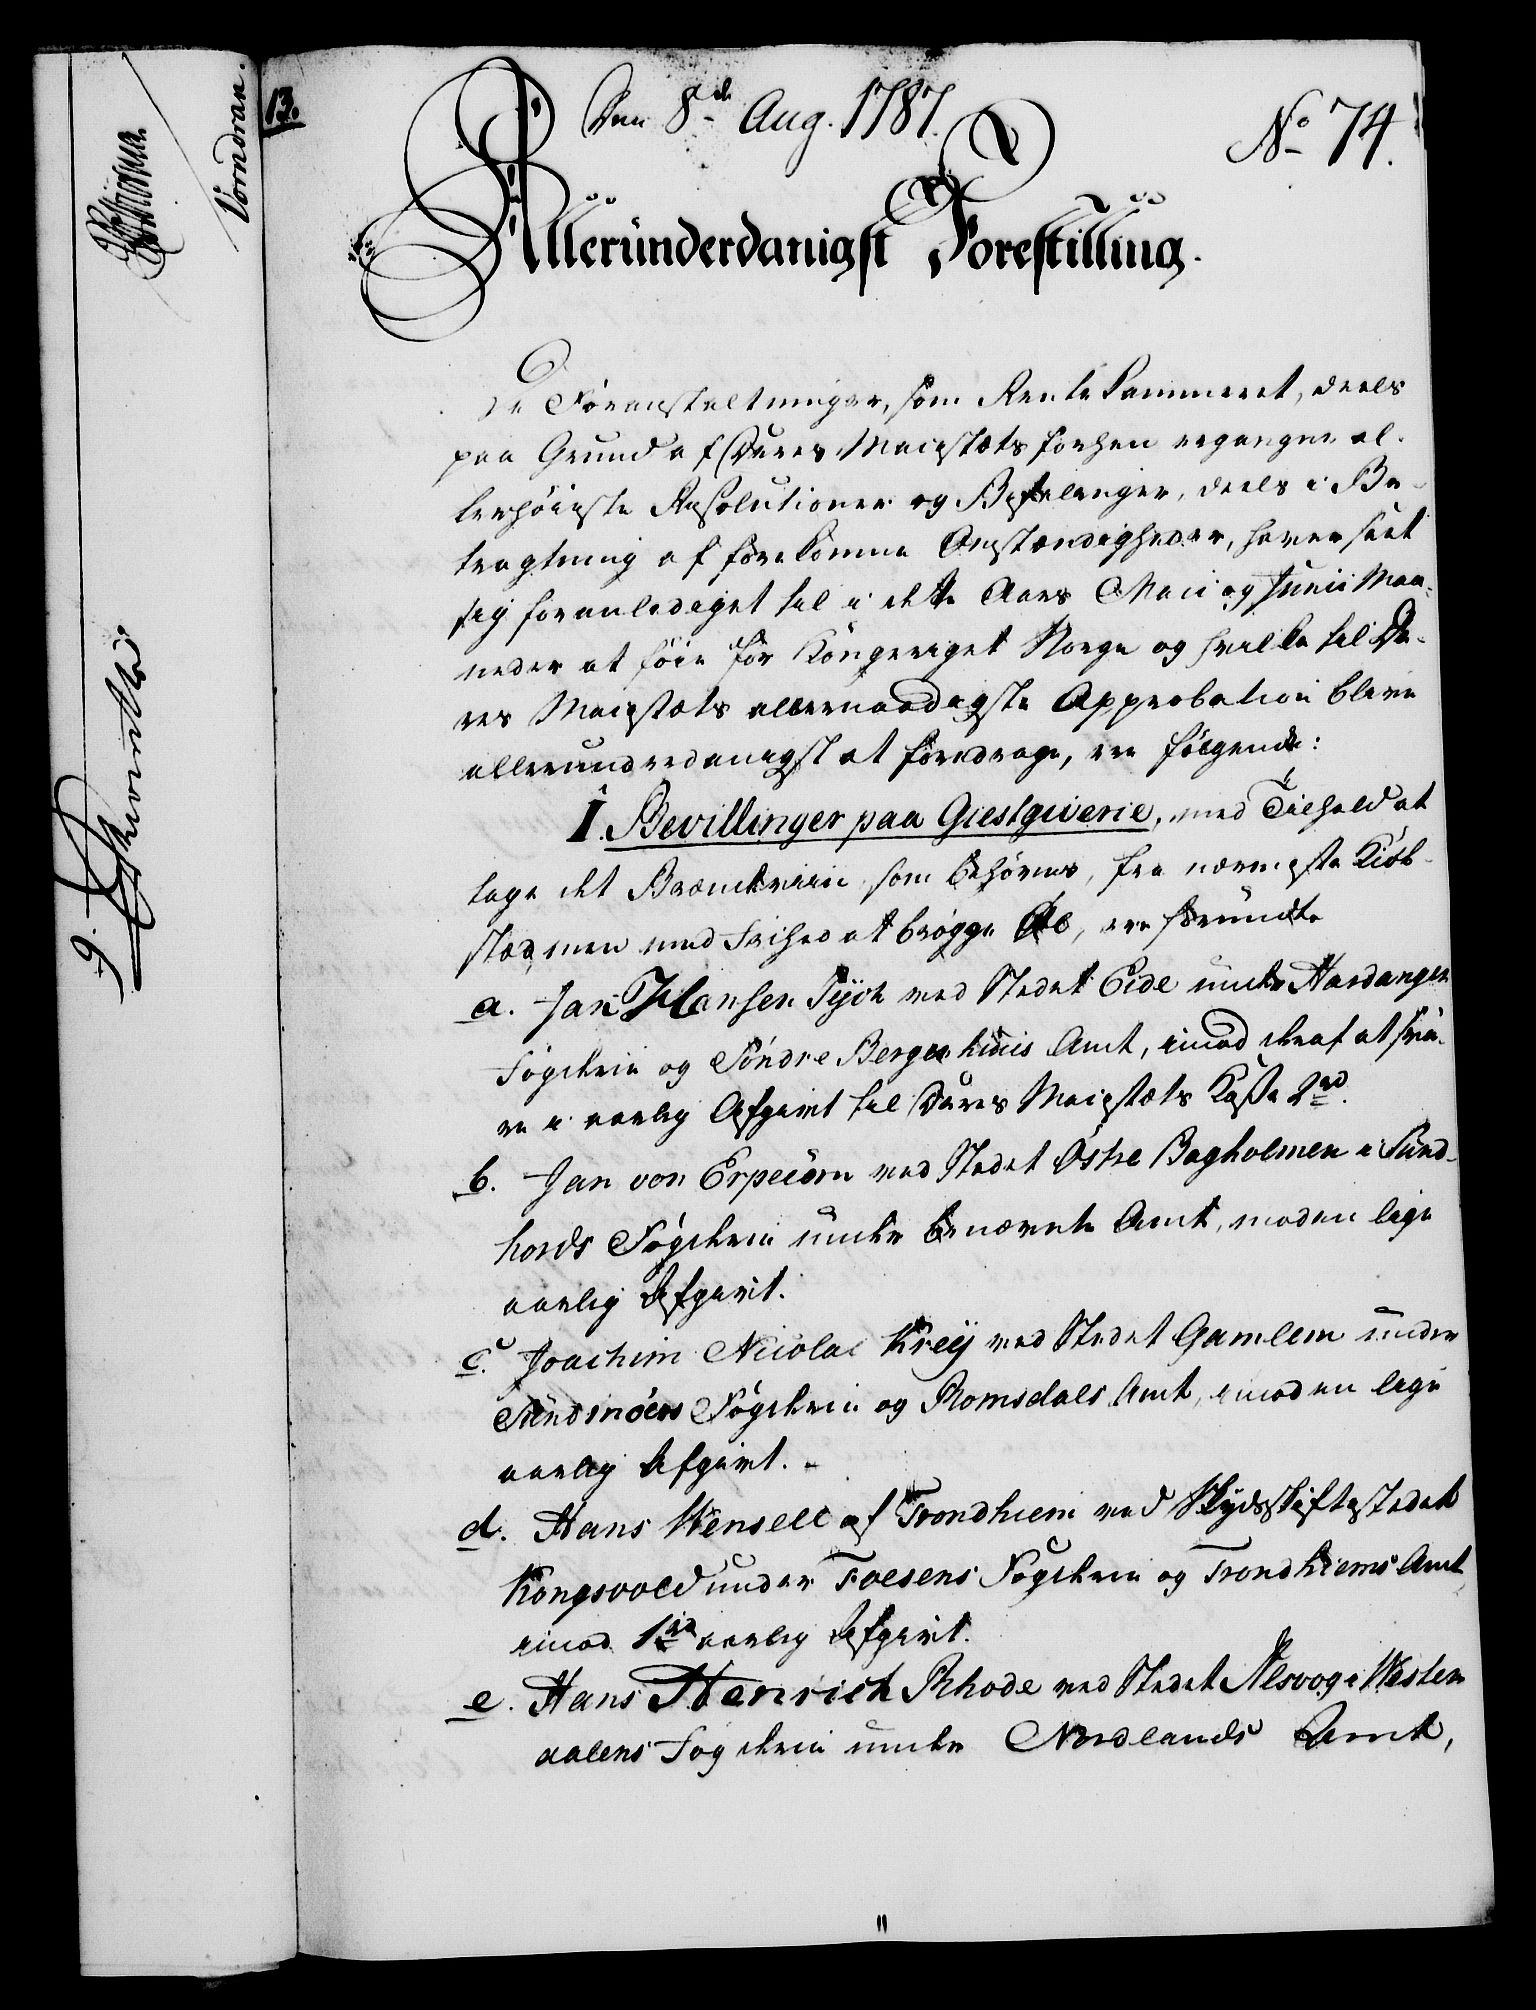 13.
Den 8de Aug. 1787.
No 74.
Allerunderdanigst Forestilling.
De Foranstaltninger, som Rente Kammeret, deels
paa Grund af Deres Majestæts forhen ergangne al-
lerhöieste Resolutioner og Befalinger, deels i Be-
tragtning af forekomne Omstændigheder, haver seet
sig foranlediget til i dette Aars Maii og Junii Maa-
neder at föie for Kongeriget Norge og hvilke til De-
res Majestæts allernaadigste Approbation blive
allerunderdanigst at foredrage, ere fölgende:
I. Bevillinger paa Giestgiverie, med Tilhold at
tage det Brændeviin som behöves, fra nærmeste Kiöb-
stæd, men med Frihed at brögge Öl, ere forundte
a. Jan Hansen Fÿch ved Stedet Eide under Hardanger
Fogderie og Söndre Bergenhuus Amt, imod deraf at sva-
re i aarlig Afgivt til Deres Majestæts Kasse 2rd.
b. Jan von Erpecom ved Stedet Östre Bagholmen i Sund-
hords Fogderie under benævnte Amt, mod en lige
aarlig Afgivt.
c. Joachim Nicolai Kreÿ ved Stedet Gamlem under
Sundmöers Fogderie og Romsdals Amt, imod en lige
aarlig Afgivt.
d. Hans Wensell af Trondhiem ved Skÿdsskiftestedet
Kongsvold under Foesens Fogderie og Trondhiems Amt
imod 1rd aarlig Afgivt.
e. Hans Henrich Rhode ved Stedet Nesvog i Wester
aalens Fogderie under Nordlands Amt,
Vorndran.